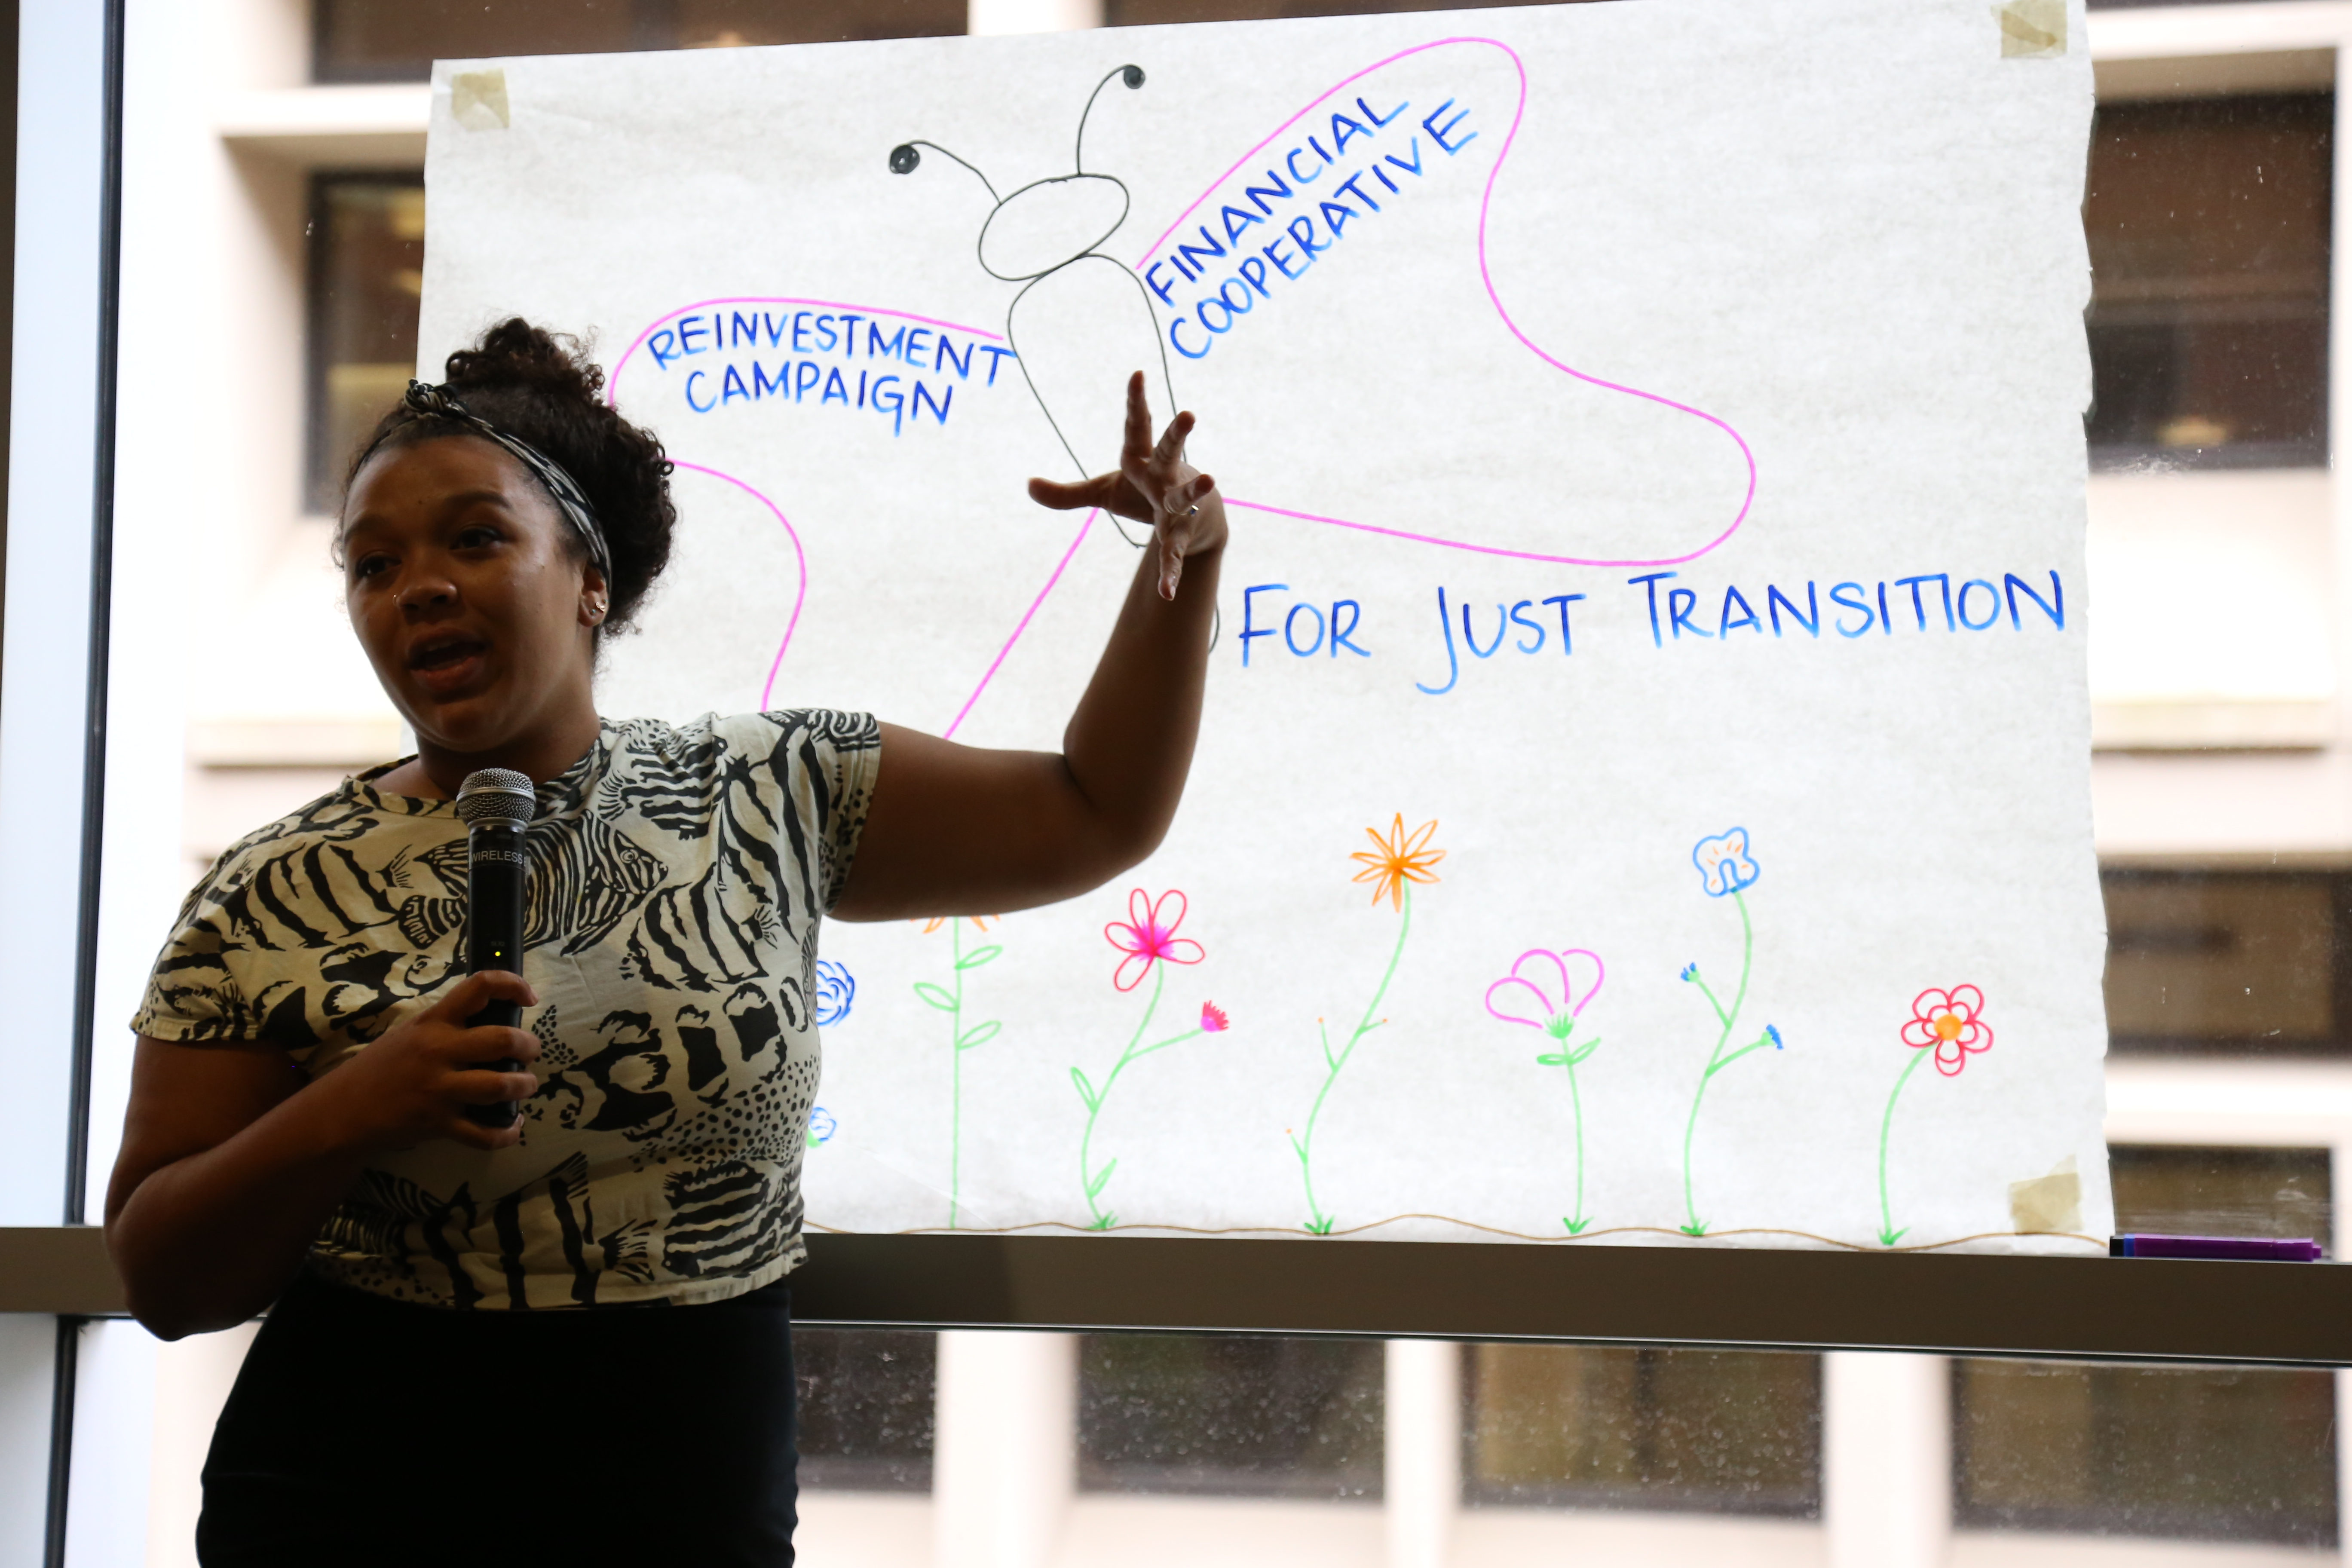 REINVESTMENT
CAMPAIGN
FINANCIAL
COOPERATIVE
FOR JUST TRANSITION
WIRELESS